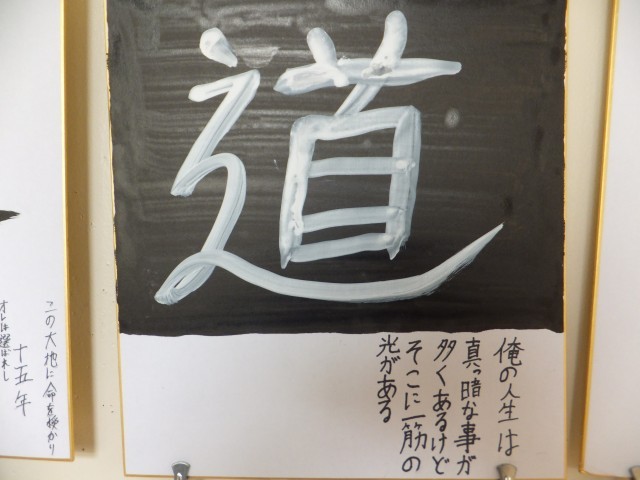 道
俺の人生は
真っ暗な事が
多くあるけど
そこに一筋の
光がある
この大地に命を授かり
十五年
オレは選ばれし